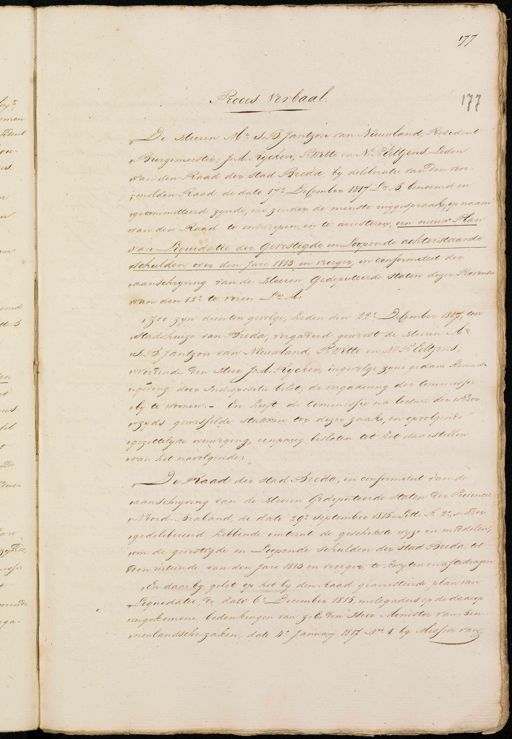 177
177
Proces Verbaal.
De Heeren Mr. J. B. Jantzon van Nieuwland, President
Burgemeester, J. A. Rijcken, P. Witte en Mr. P. Eltgens Leden
van den Raad der Stad Breda by deliberatie van den
Raad de dato 17e December 1817 La. B benoemd en
gecommitteerd zynde, om zonder de minste ruggespraak, op naam
van den Raad te ontwerpen, en te arresteren, een nieuw Plan
van Liquidatie der Gevestigde en Loopende achterstaande
Schulden over den Jare 1813 en vroeger, in conformiteit der
aanschryving van de Heeren Gedeputeerde Staten dezer Provincie
van den 12e te voren La. A.
Zoo zyn dienten gevolge, heden den 22e December 1817, ten
Stadshuize van Breda, vergaderd geweest de Heeren Mr.
J. B. Jantzon van Nieuwland, P. Witte en Mr. P. Eltgens,
wordende den Heer J. A. Rijcken, ingevolge zyne gedane
door Indispositie belet, de vergadering der Commissie
by te woonen. - En heeft de Commissie na lecture der
zyds gewisselde stukken ter dezer zaake, en op volgende
opzettelyke overweging, eenparig besloten tot het daarstellen
van het navolgende;
De Raad der Stad Breda, in conformiteit van de
aanschryving van de Heeren Gedeputeerde Staten der Provincie
Noord-Braband, de dato 29e September 1815 Litt. A. 2e,
gedelibereerd hebbende omtrent de geschikste wyze en middelen,
om de gevestigde en Loopende Schulden der Stad Breda, tot
den uiteinde van den Jare 1813 en vroeger te kwyten en af te dragen
En daar by gelet op het by den Raad gearresteerde, plan van
Liquidatie, de dato 6e December 1815, mitsgaders op de daarop
ingekomene, bedenkingen van Z. E. den Heer Minister van Bin-
nenlandsche zaken, dato 4e January 1817 No. 4 by Missive van